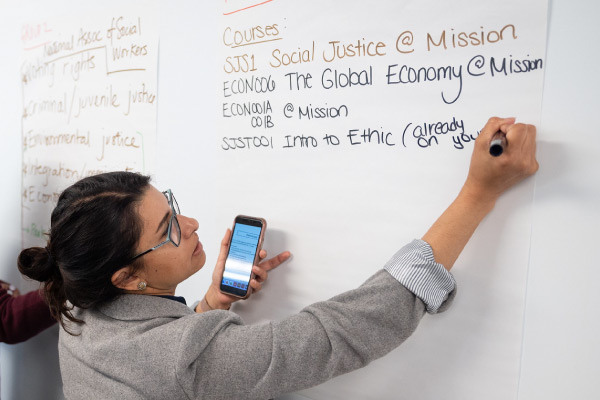 National Assoc of Social
Workers
Voting rights
Criminal/juvenile justice
Environmental justice
Integration/
Courses:
SJS1 Social Justice @ Mission
ECON006 The Global Economy @ Mission
ECON001A @ Mission
001B
SJST001 Intro to Ethic (already
on you